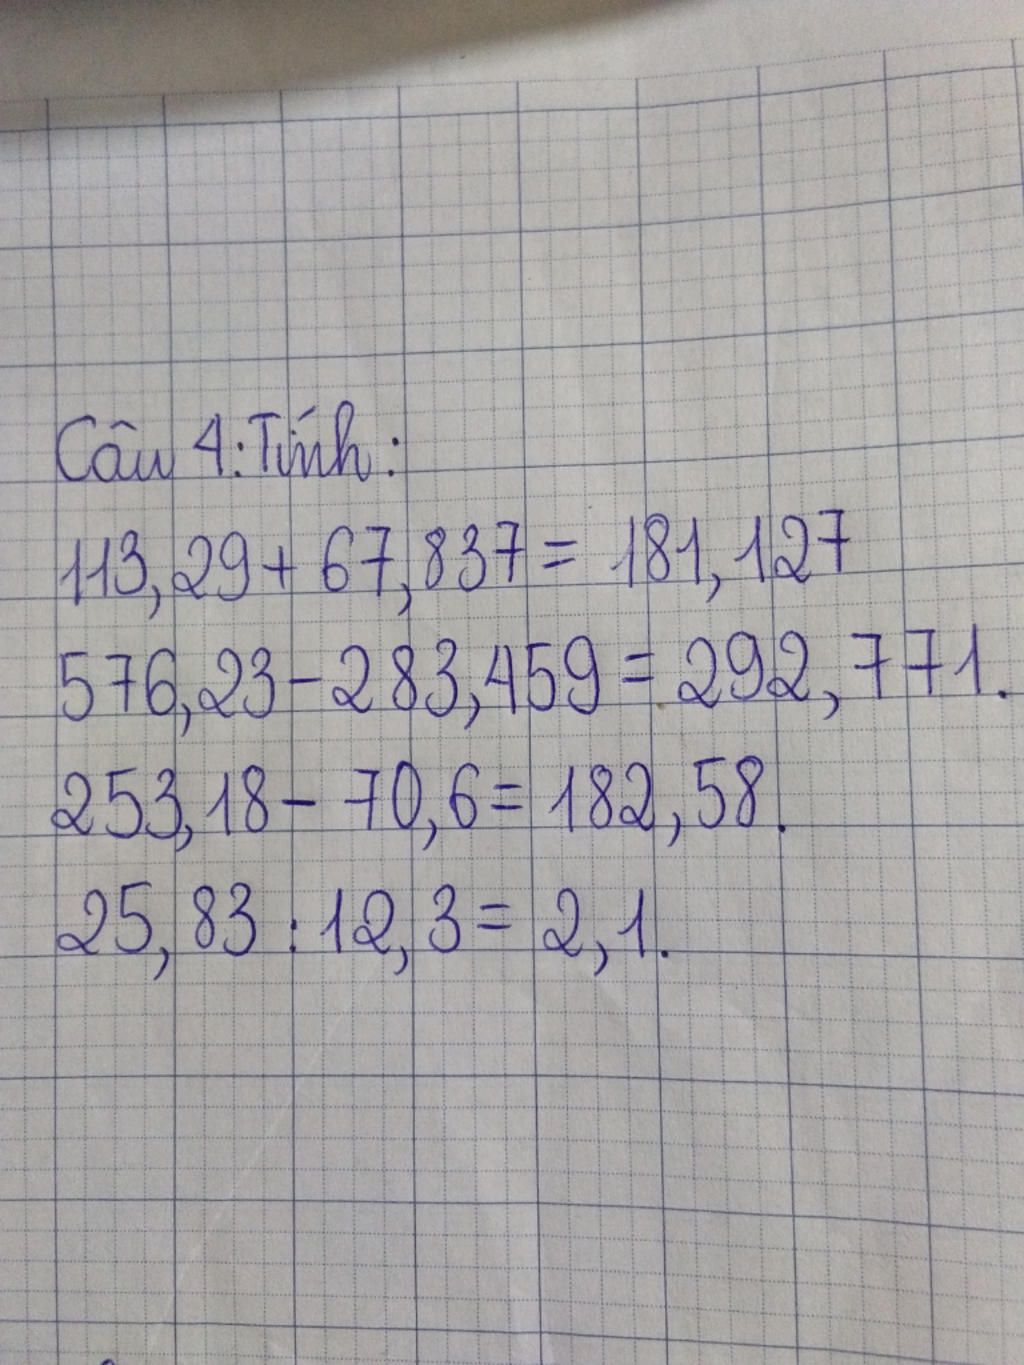 Câu 4: Tính:
113,29 + 67,837 = 181,127
576,23 - 283,459 = 292,771.
253,18 - 70,6 = 182,58.
25,83 : 12,3 = 2,1.